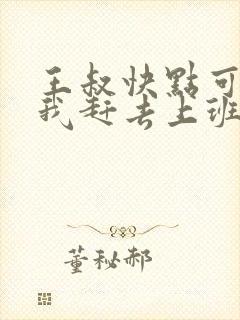 王叔快點可
我赶去上班
董秘郝